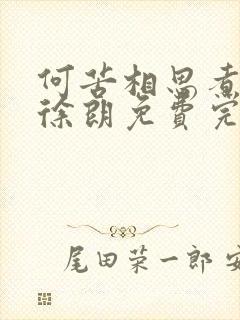 何苦相思煮
徐朗免费完
尾田荣一郎 安